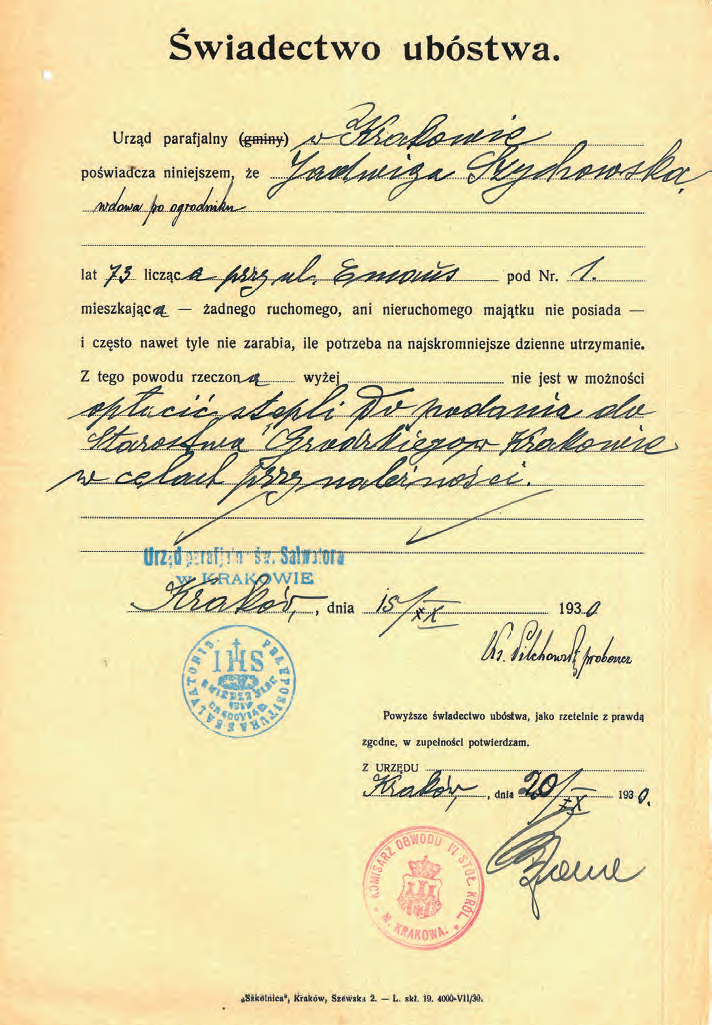 Świadectwo ubóstwa.
Urząd parafjalny (gminy) w Krakowie
poświadcza niniejszem, że Jadwiga Szychowska,
wdowa po ogrodniku
lat 73 licząca przy ul. Emaus pod Nr. 1.
mieszkająca — żadnego ruchomego, ani nieruchomego majątku nie posiada —
i często nawet tyle nie zarabia, ile potrzeba na najskromniejsze dzienne utrzymanie.
Z tego powodu rzeczona wyżej nie jest w możności
opłacić stępli do podania do
Starostwa Grodzkiego w Krakowie
w celach przynależności.
Urząd parafjaln św. Salwatora
w KRAKOWIE
Kraków, dnia 15/XX 1930
Ks. Pilchowski proboszcz
IHS
PRAEPOSITURA S. SALVATORIS
Powyższe świadectwo ubóstwa, jako rzetelnie z prawdą
zgodne, w zupełności potwierdzam.
Z URZĘDU
Kraków, dnia 20/XX 1930.
KOMISARZ OBWODU IV STOŁ. KRÓL.
M. KRAKOWA.
„Szkolnica", Kraków, Szewska 2. — L. skł. 19. 4000-VII/30.